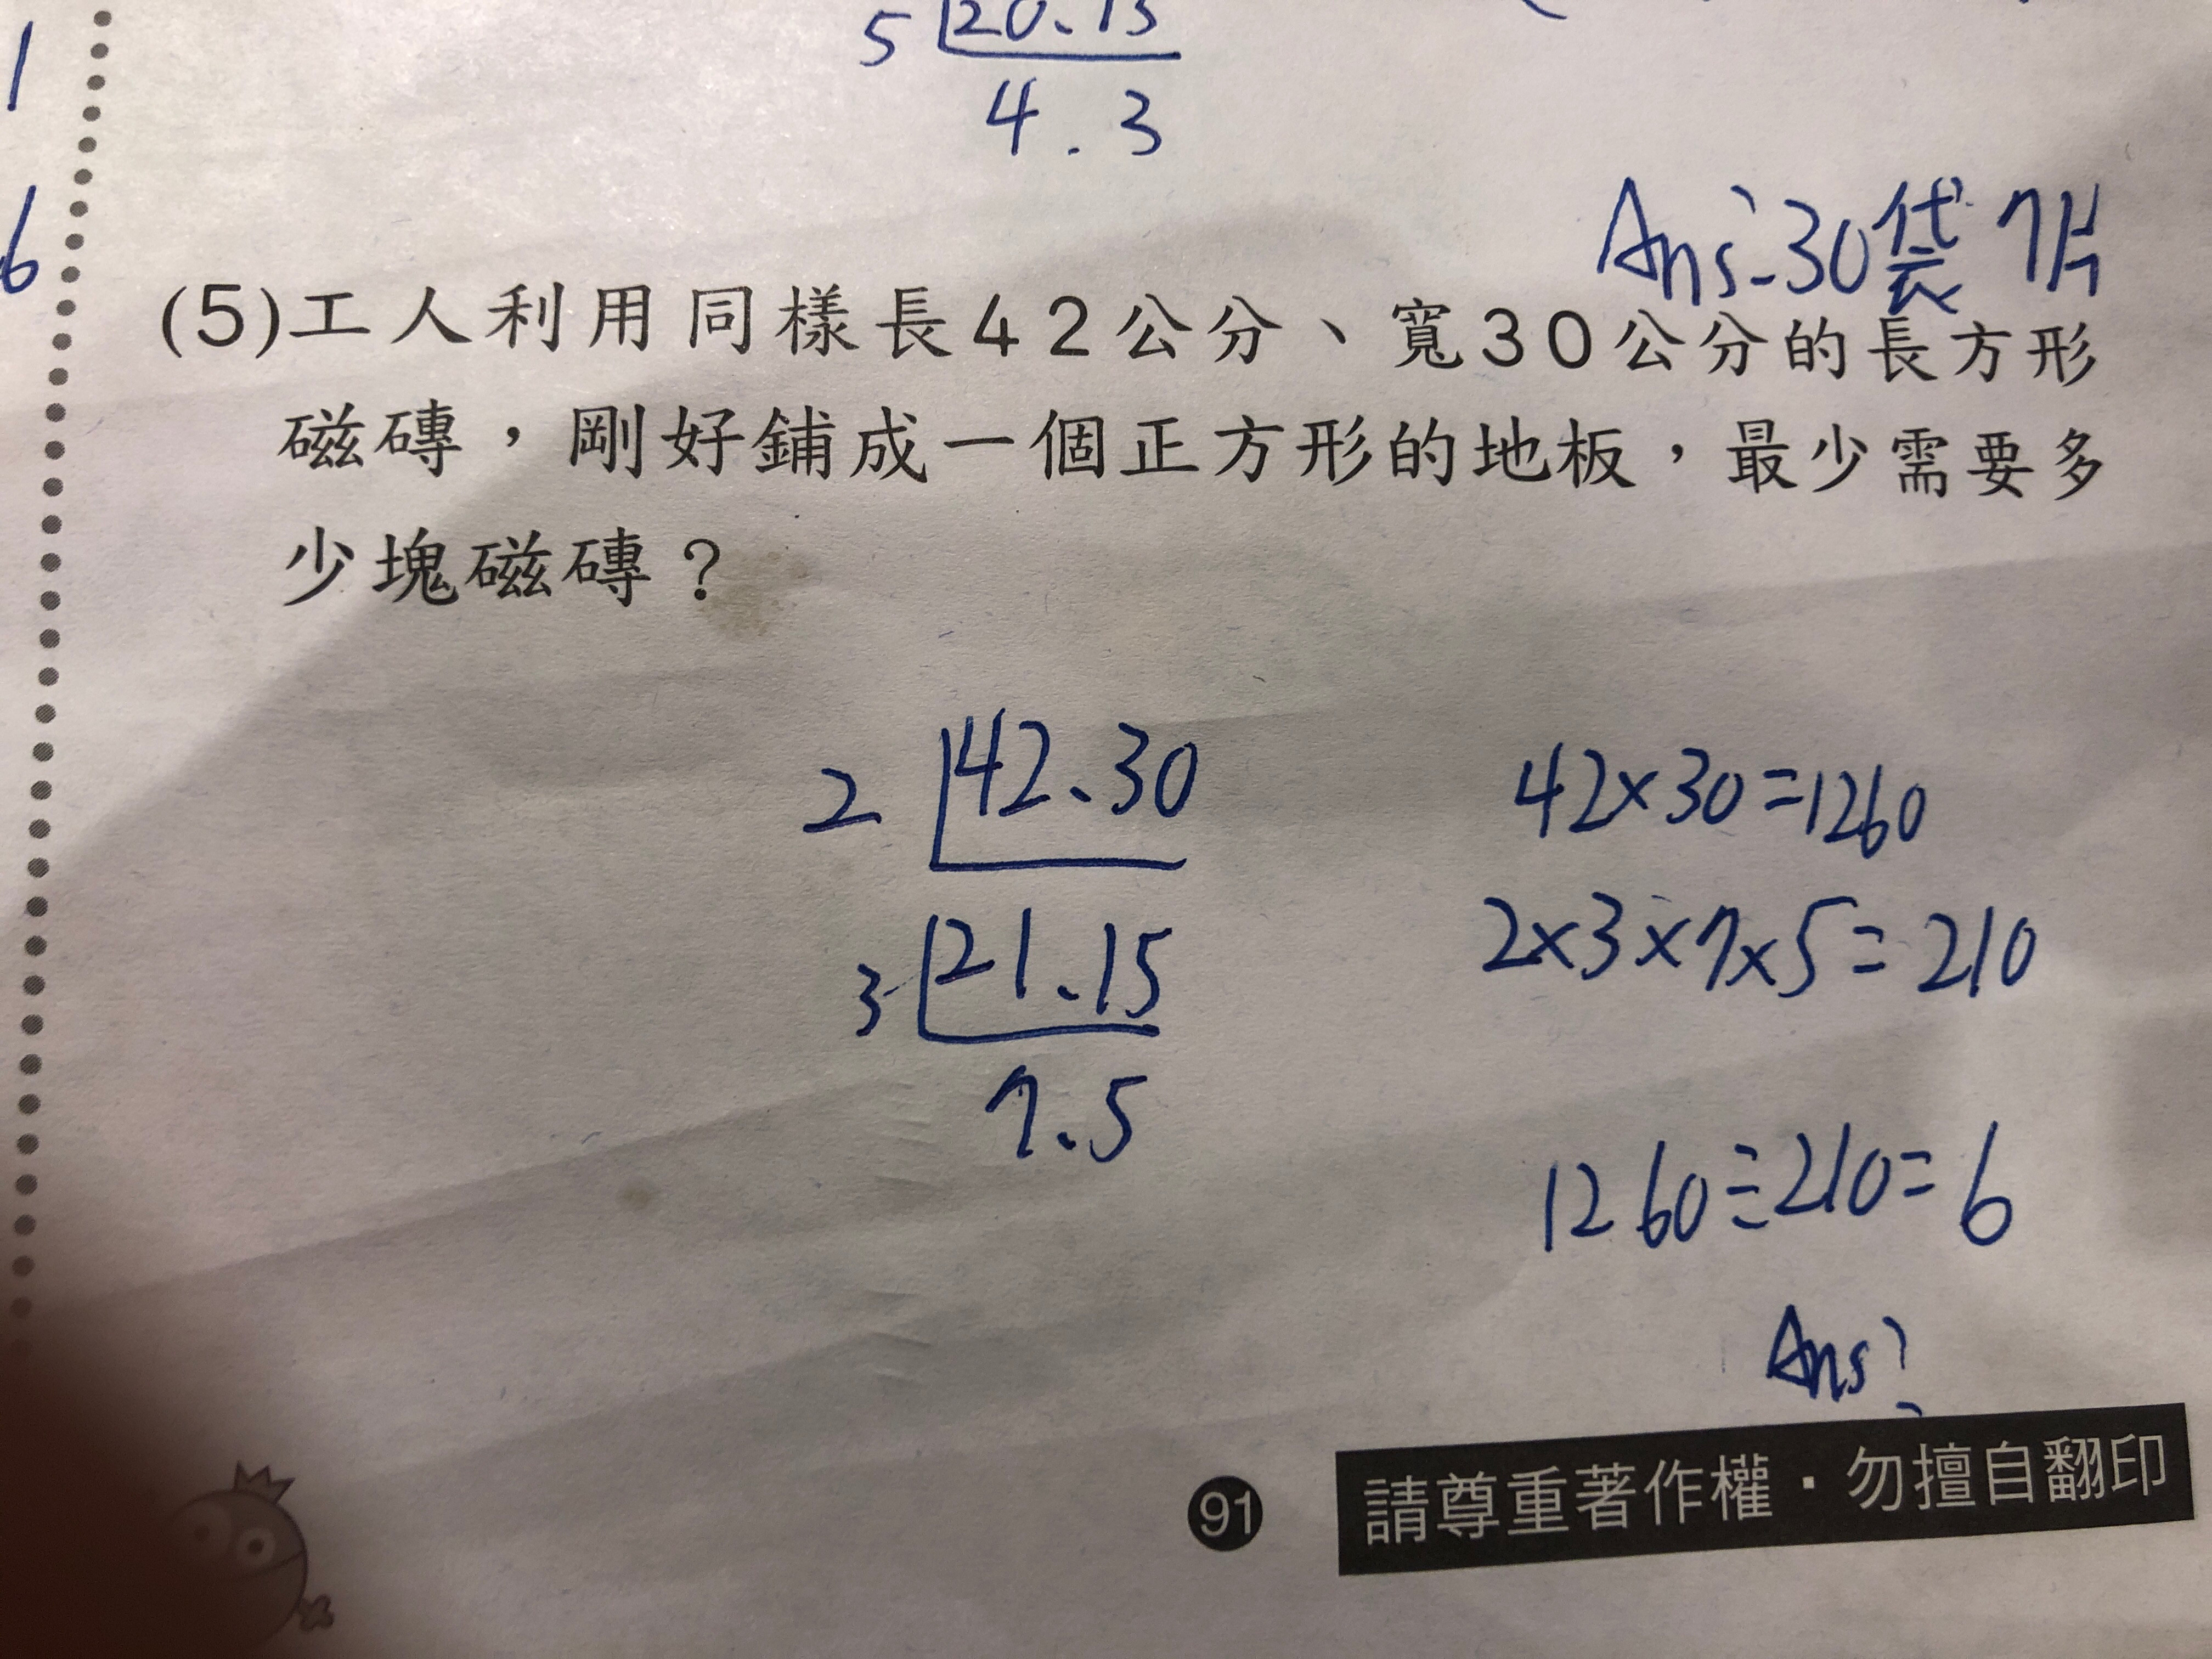 1
5 20.15
4.3
6
Ans:30袋 7片
(5)工人利用同樣長42公分、寬30公分的長方形
磁磚，剛好鋪成一個正方形的地板，最少需要多
少塊磁磚？
2 42.30
3 21.15
7.5
42×30=1260
2×3×7×5=210
1260÷210=6
Ans:
91
請尊重著作權·勿擅自翻印